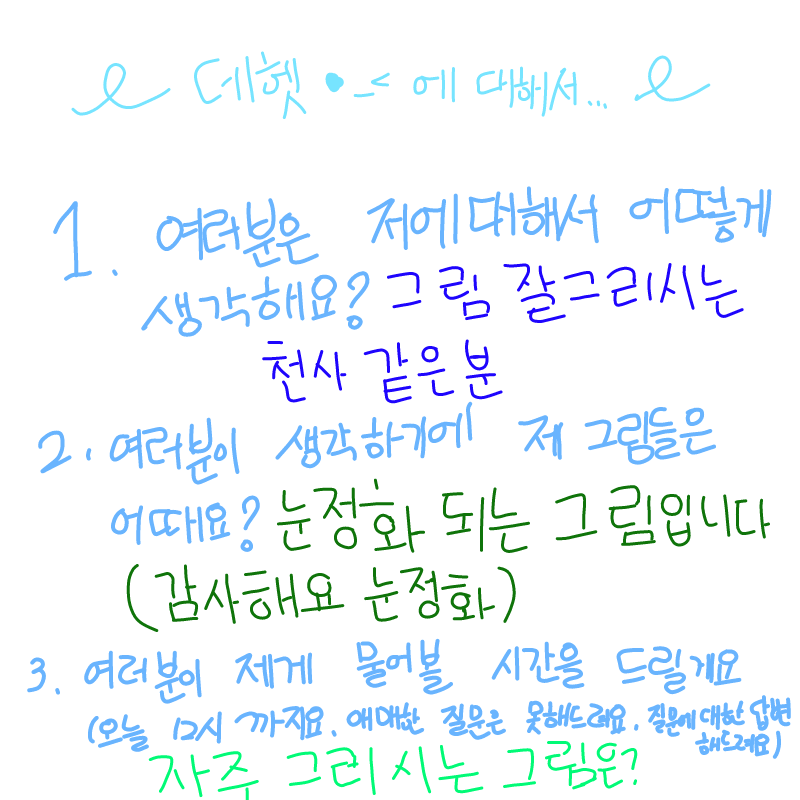 데헷 •_< 에 대해서...
1. 여러분은 저에대해서 어떻게
생각해요? 그림 잘그리시는
천사 같은분
2. 여러분이 생각하기에 제 그림들은
어때요? 눈정화 되는 그림입니다
(감사해요 눈정화)
3. 여러분이 제게 물어볼 시간을 드릴게요
(오늘 12시 까지요. 애매한 질문은 못해드려요. 질문에대한 답변
해드려요)
자주 그리시는 그림은?